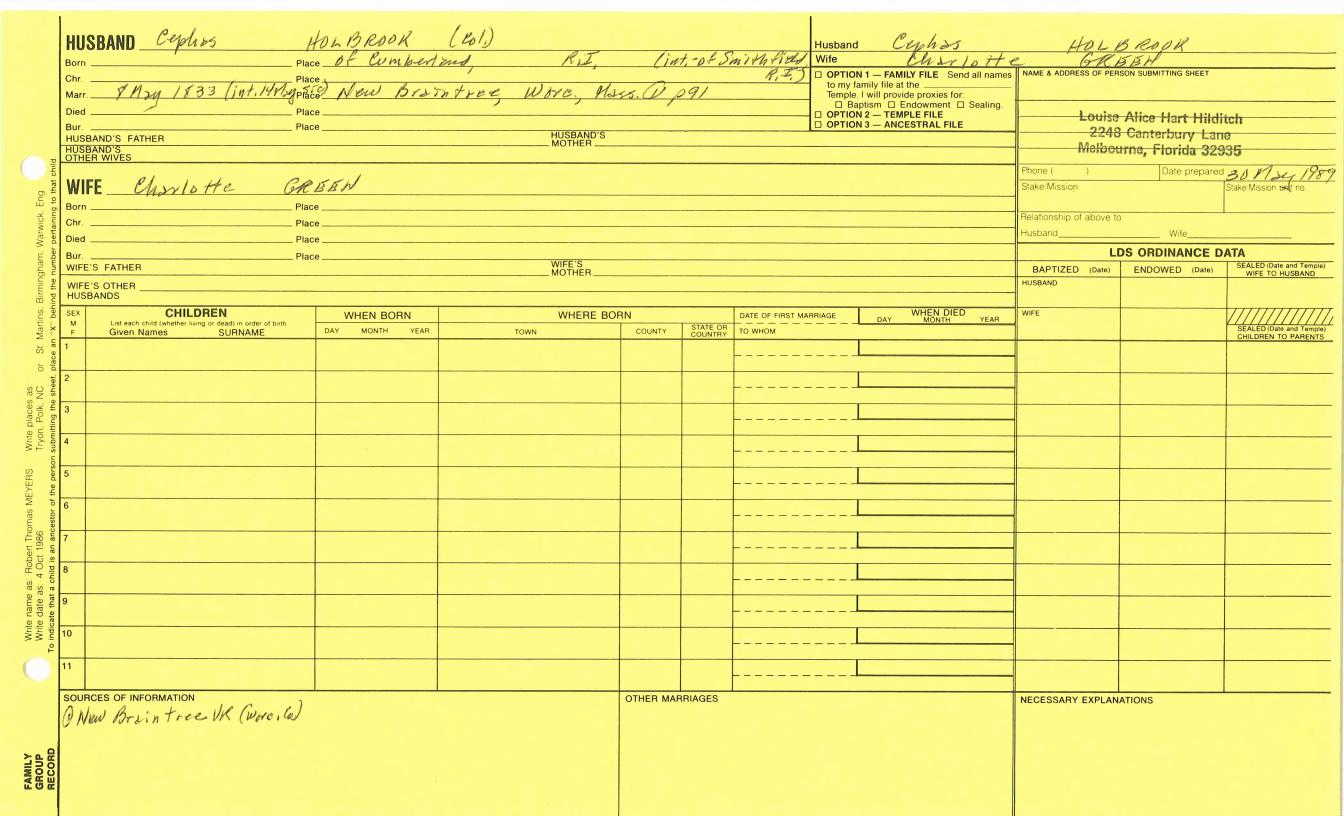 HUSBAND Cephas HOLBROOK (Col.)
Born Place of Cumberland, R.I. (int.-of Smithfield R.I.)
Chr. Place
Marr. 8 May 1833 (int. Place New Braintree, Worc., Mass. ① p91
Died Place
Bur. Place
HUSBAND'S FATHER HUSBAND'S MOTHER
HUSBAND'S OTHER WIVES
WIFE Charlotte GREEN
Born Place
Chr. Place
Died Place
Bur. Place
WIFE'S FATHER WIFE'S MOTHER
WIFE'S OTHER HUSBANDS
Husband Cephas HOLBROOK
Wife Charlotte GREEN
☐ OPTION 1 — FAMILY FILE Send all names
to my family file at the
Temple. I will provide proxies for:
☐ Baptism ☐ Endowment ☐ Sealing.
☐ OPTION 2 — TEMPLE FILE
☐ OPTION 3 — ANCESTRAL FILE
NAME & ADDRESS OF PERSON SUBMITTING SHEET
Louise Alice Hart Hilditch
2248 Canterbury Lane
Melbourne, Florida 32935
Phone ( ) Date prepared 30 May 1989
Stake/Mission Stake Mission unit no.
Relationship of above to
Husband Wife
LDS ORDINANCE DATA
BAPTIZED (Date) ENDOWED (Date) SEALED (Date and Temple) WIFE TO HUSBAND
HUSBAND
WIFE
SEALED (Date and Temple) CHILDREN TO PARENTS
SEX M F
CHILDREN
List each child (whether living or dead) in order of birth
Given Names SURNAME
WHEN BORN
DAY MONTH YEAR
WHERE BORN
TOWN COUNTY STATE OR COUNTRY
DATE OF FIRST MARRIAGE
TO WHOM
WHEN DIED
DAY MONTH YEAR
1
2
3
4
5
6
7
8
9
10
11
SOURCES OF INFORMATION
① New Braintree VR (Worc. Co)
OTHER MARRIAGES
NECESSARY EXPLANATIONS
Write name as: Robert Thomas MEYERS Write places as
Write date as: 4 Oct 1986 Tryon, Polk, NC or St. Martins, Birmingham, Warwick, Eng.
To indicate that a child is an ancestor of the person submitting the sheet, place an "X" behind the number pertaining to that child.
FAMILY
GROUP
RECORD